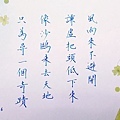 風雨來不避開
謙虛把頭低下來
像沙鷗來去天地
只為尋一個奇蹟